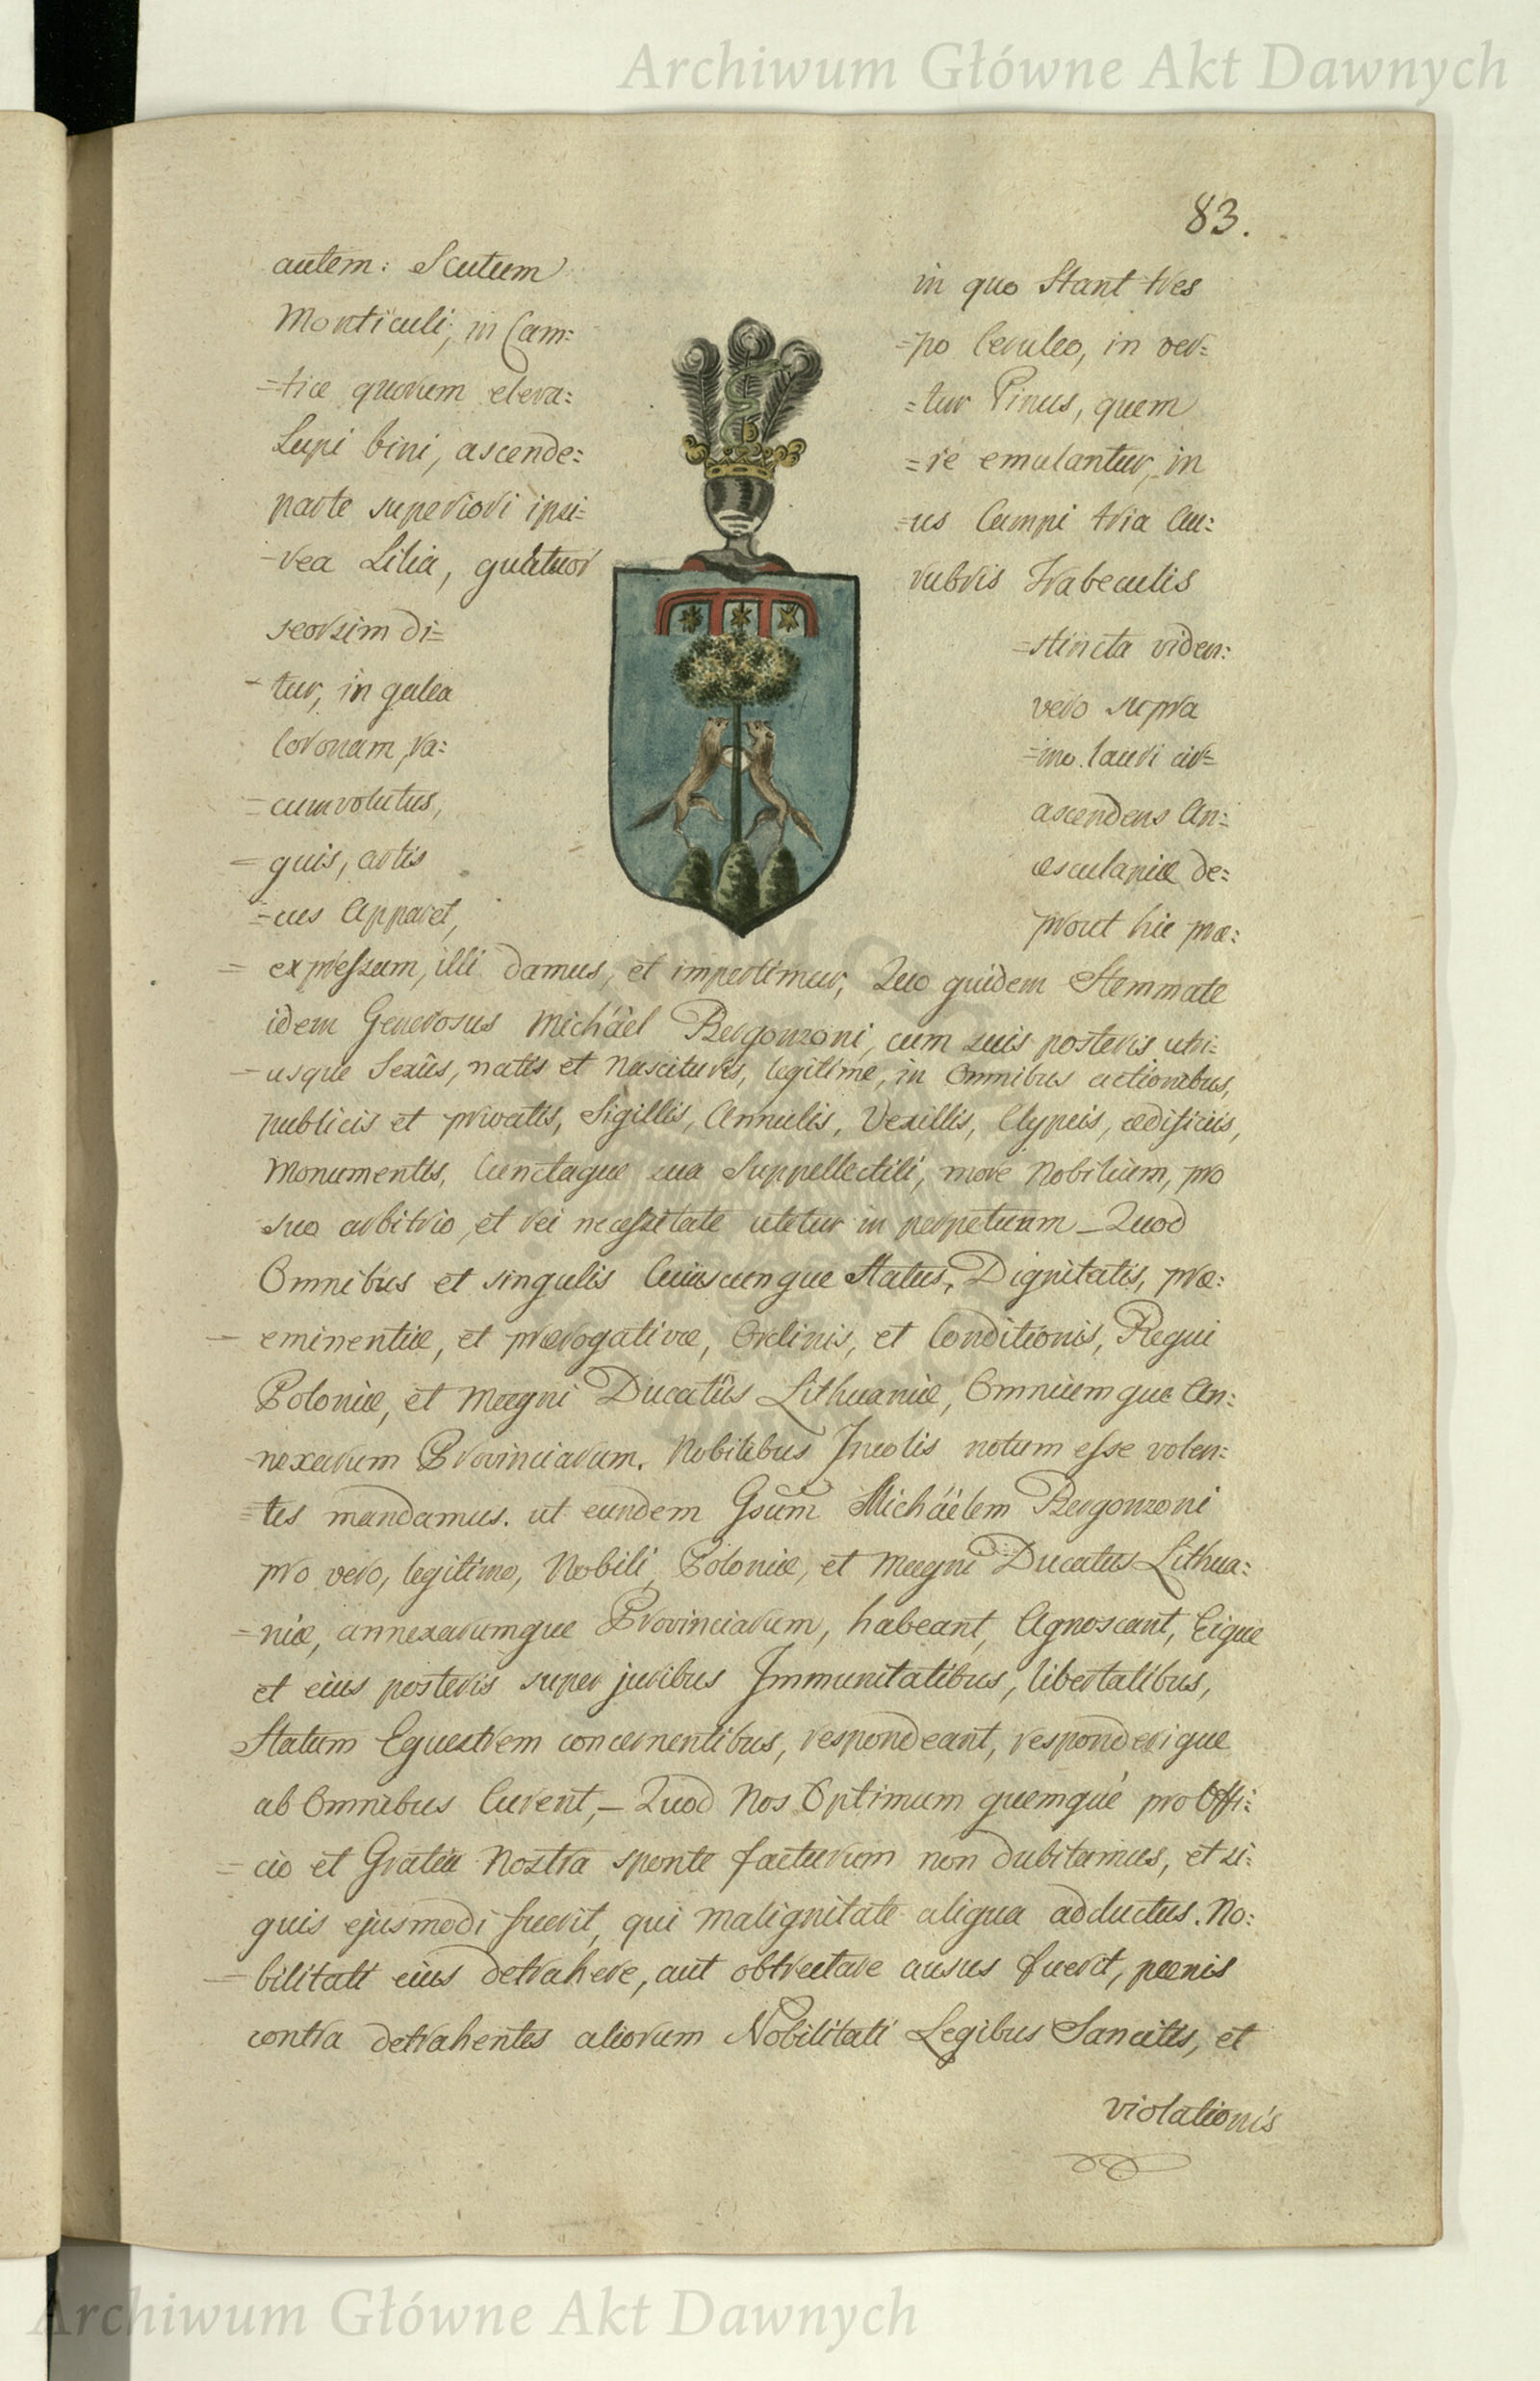 Archiwum Główne Akt Dawnych
83.
autem: Scutum in quo Stant tres
Monticuli, in Cam= =po Ceruleo, in ver=
=tice quorum eleva= =tur Pinus, quem
Lupi bini, ascende= =re emulantur, in
parte superiori ipsi= =us Campi tria Au=
=rea Lilia, quatuor rubris Trabeculis
seorsim di= =stincta viden=
=tur, in galea vero supra
Coronam, ra= =mo lauri cir=
=cumvolutus, ascendens An=
=guis, artis æsculapiæ de=
=cus Apparet, prout hic præ=
=expressum, illi damus, et impertimur, Quo quidem Stemmate
idem Generosus Michäel Bergonzoni, cum suis posteris utri=
=usque Sexûs, natis et Nascituris, legitime, in Omnibus actionibus,
publicis et privatis, Sigillis, Annulis, Vexillis, Clypeis, ædificiis,
Monumentis, Cunctaque sua Suppellectili, more Nobilium, pro
suo arbitrio, et rei necessitate utetur in perpetuum – Quod
Omnibus et singulis Cuiuscunque Status, Dignitatis, præ=
=eminentiæ, et prærogativæ, Ordinis, et Conditionis, Regni
Poloniæ, et Magni Ducatûs Lithuaniæ, Omniumque An=
=nexarum Provinciarum. Nobilibus Incolis notum esse volen=
=tes mandamus. ut eundem Gsum Michäelem Bergonzoni
pro vero, legitimo, Nobili, Poloniæ, et Magni Ducatus Lithua=
=niæ, annexarumque Provinciarum, habeant, Agnoscant, Eique
et eius posteris super juribus Immunitatibus, libertatibus,
Statum Equestrem concernentibus, respondeant, responderique
ab Omnibus Curent, – Quod Nos Optimum quemque pro Offi=
=cio et Gratia Nostra sponte facturum non dubitamus, et si=
quis ejusmodi fuerit, qui malignitate aliqua adductus. No=
=bilitati eius detrahere, aut obtrectare ausus fuerit, pænis
contra detrahentes aliorum Nobilitati Legibus Sancitis, et
violationis
Archiwum Główne Akt Dawnych